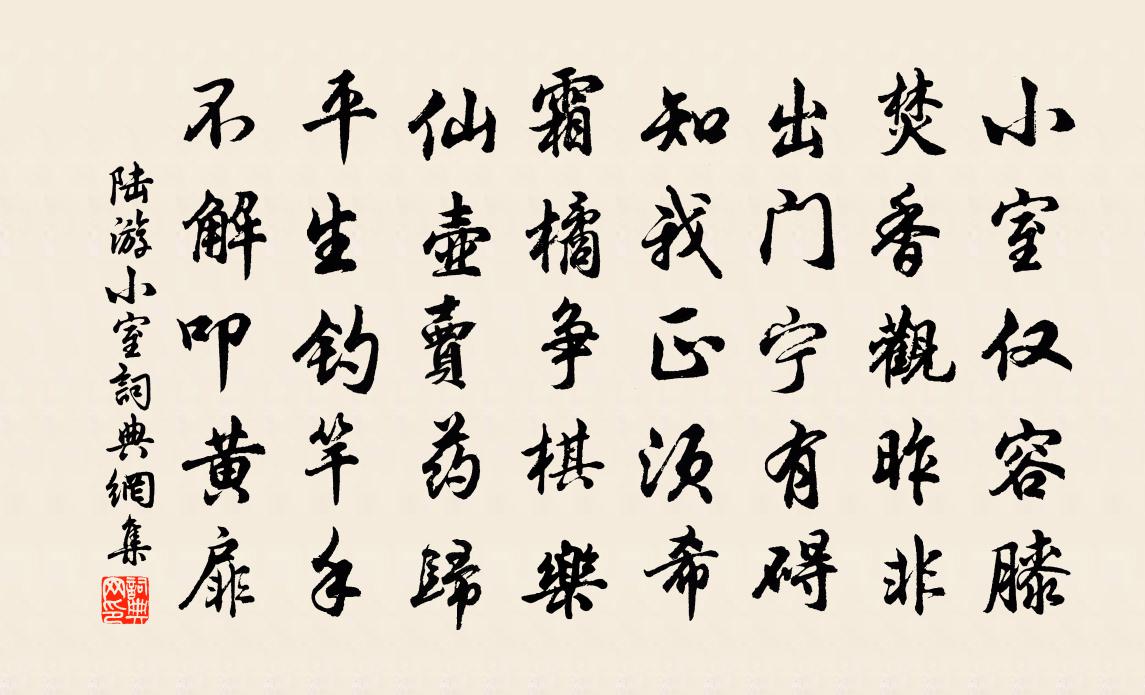 小室仅容膝
焚香觀昨非
出门宁有碍
知我正须希
霜橘争棋樂
仙壺賣药歸
平生钓竿手
不解叩黄扉
陆游小室詞典網集
詞典网印